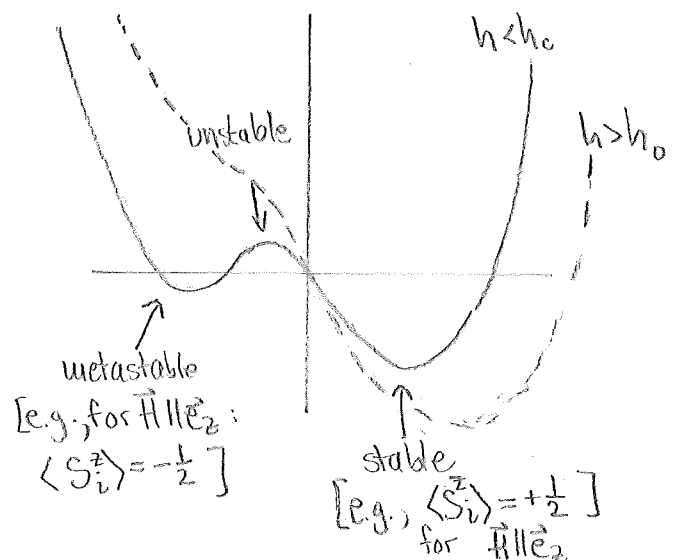 h<h₀
unstable
h>h₀
metastable
[e.g., for H⃗ || e⃗_z :
⟨S_i^z⟩ = -½ ]
stable
[e.g., ⟨S_i^z⟩ = +½ ]
for H⃗ || e⃗_z